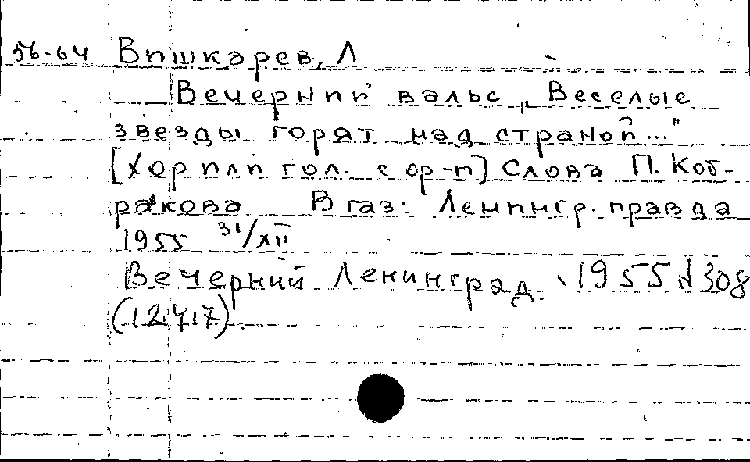 56-64 Вишкарев, Л
Вечерний вальс „Веселые
звезды горят над страной..."
[Хор или гол. с ор-п] Слова П. Коб-
ракова В газ. Ленингр. правда
1955 31/XII
Вечерний Ленинград. 1955 № 308
(1247)